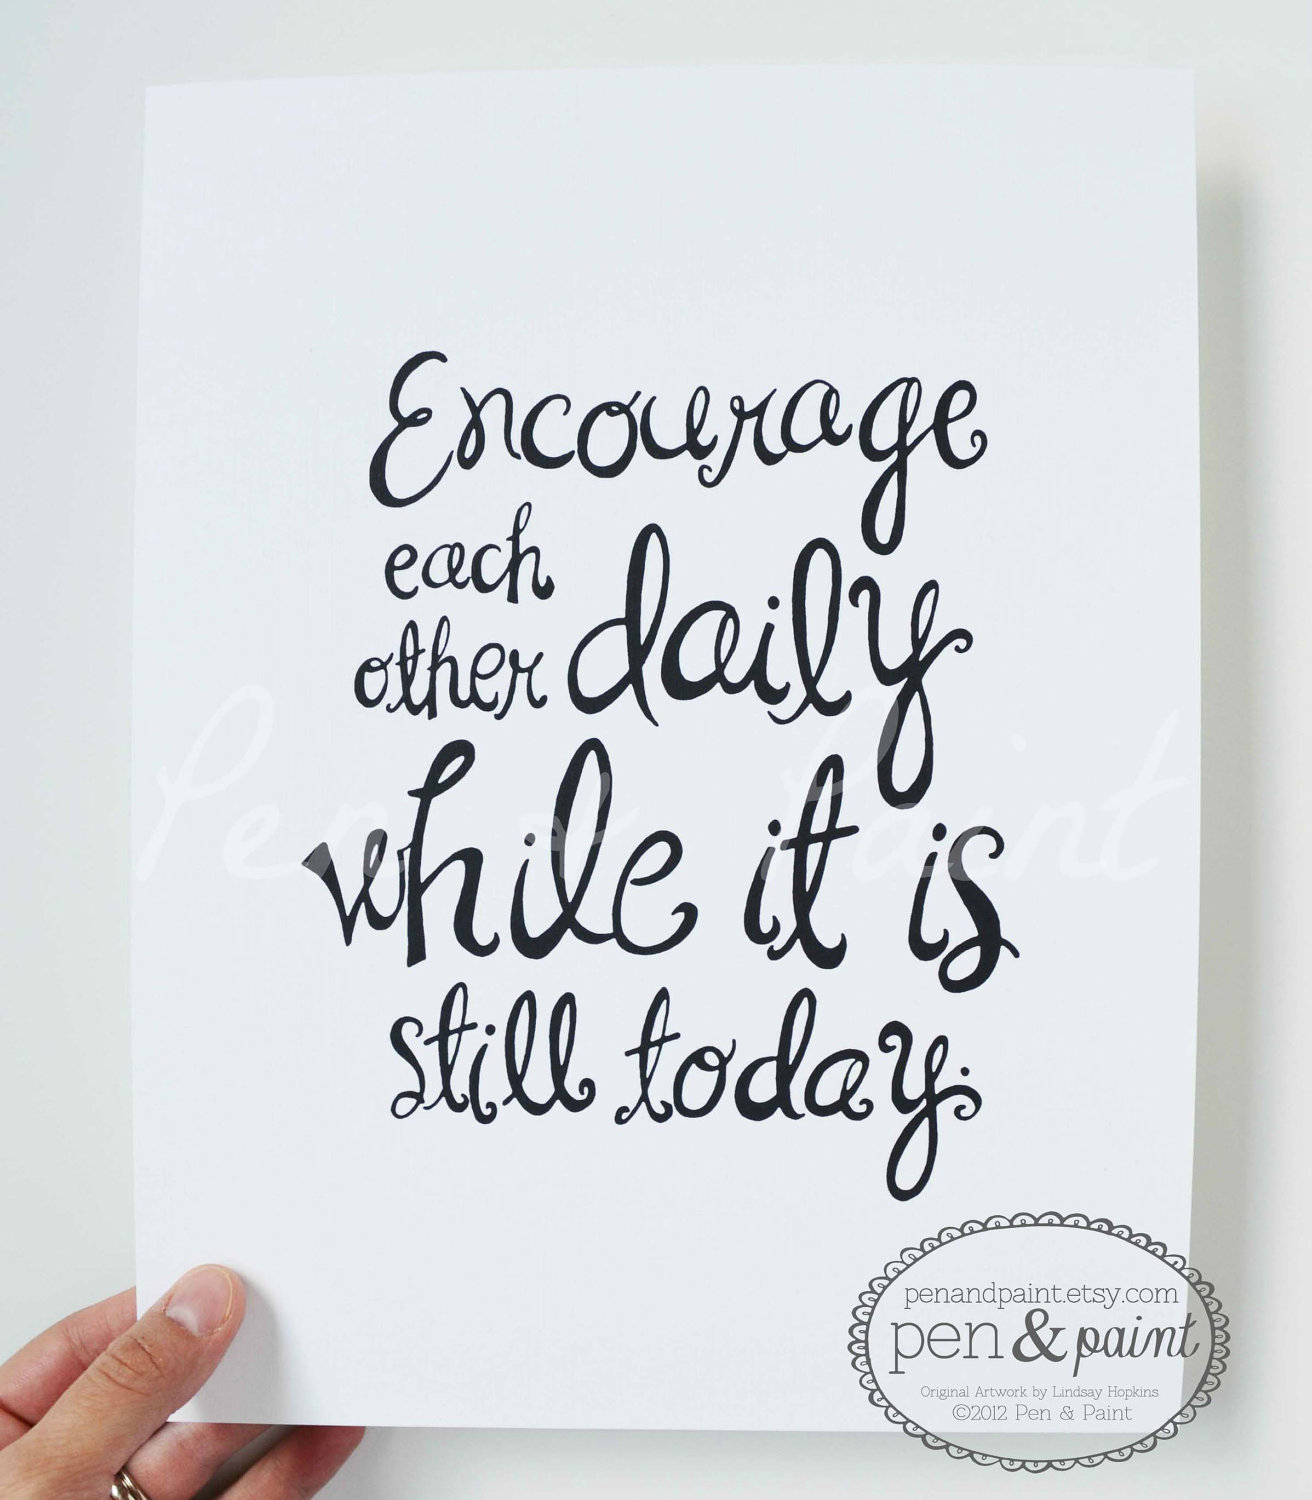 Encourage
each
other daily
while it is
still today.
Pen & Paint
penandpaint.etsy.com
pen & paint
Original Artwork by Lindsay Hopkins
©2012 Pen & Paint